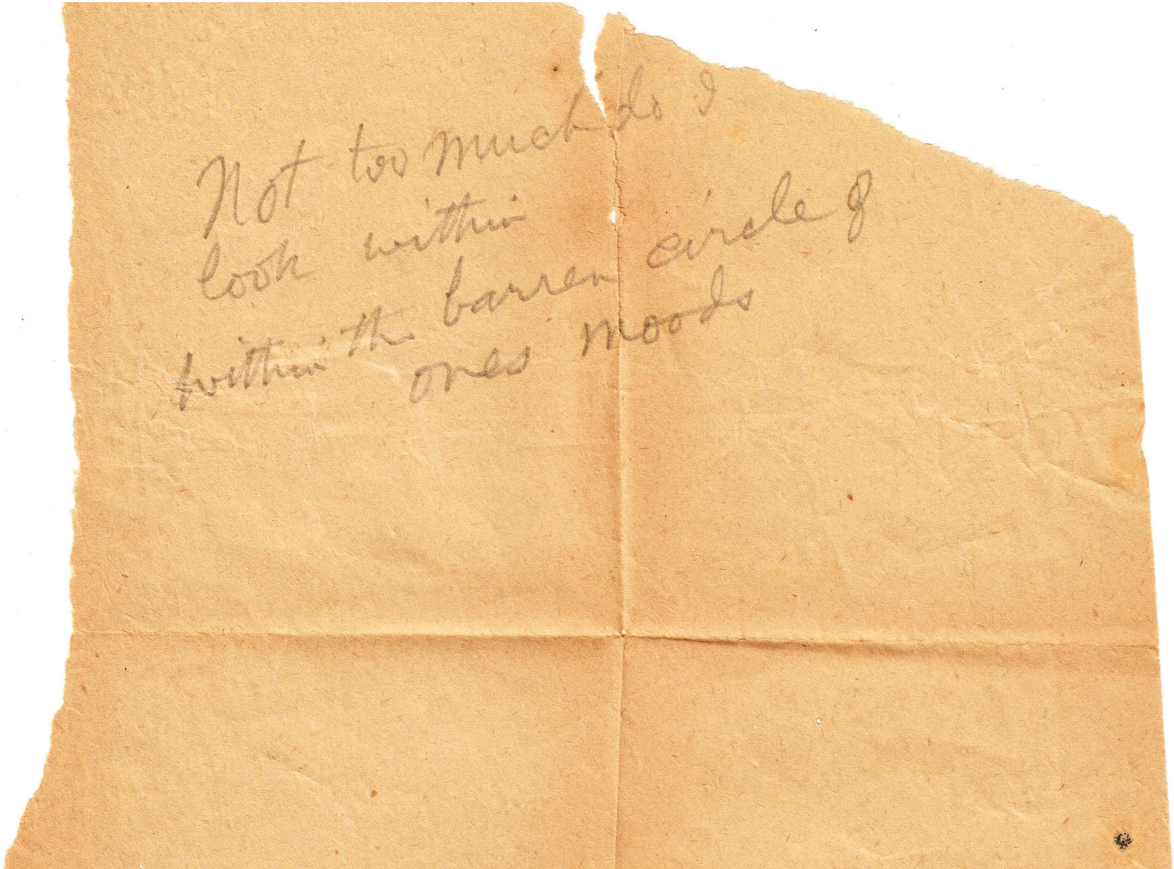 Not too much do I
look within
within the barren circle of
ones moods